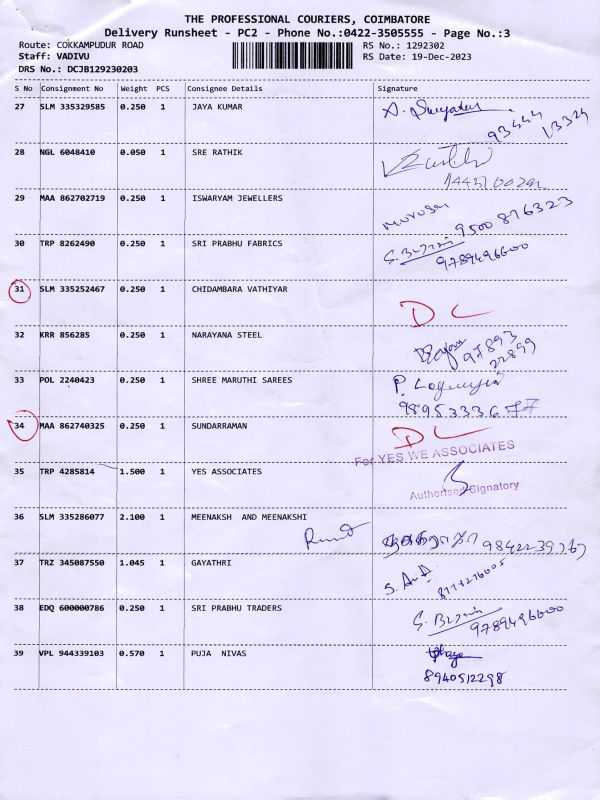 THE PROFESSIONAL COURIERS, COIMBATORE
Delivery Runsheet - PC2 - Phone No.:0422-3505555 - Page No.:3
Route: COKKAMPUDUR ROAD RS No.: 1292302
Staff: VADIVU RS Date: 19-Dec-2023
DRS No.: DCJB129230203
S No Consignment No Weight PCS Consignee Details Signature
27 SLM 335329585 0.250 1 JAYA KUMAR
93444 13324
28 NGL 6048410 0.050 1 SRE RATHIK
29 MAA 862702719 0.250 1 ISWARYAM JEWELLERS
9500 876323
30 TRP 8262490 0.250 1 SRI PRABHU FABRICS
9789496600
31 SLM 335252467 0.250 1 CHIDAMBARA VATHIYAR
DL
32 KRR 856285 0.250 1 NARAYANA STEEL
97893
22899
33 POL 2240423 0.250 1 SHREE MARUTHI SAREES
9895333677
34 MAA 862740325 0.250 1 SUNDARRAMAN
DL
For YES WE ASSOCIATES
35 TRP 4285814 1.500 1 YES ASSOCIATES
Authorised Signatory
36 SLM 335286077 2.100 1 MEENAKSH AND MEENAKSHI
9842239767
37 TRZ 345087550 1.045 1 GAYATHRI
38 EDQ 600000786 0.250 1 SRI PRABHU TRADERS
9789496600
39 VPL 944339103 0.570 1 PUJA NIVAS
8940512298